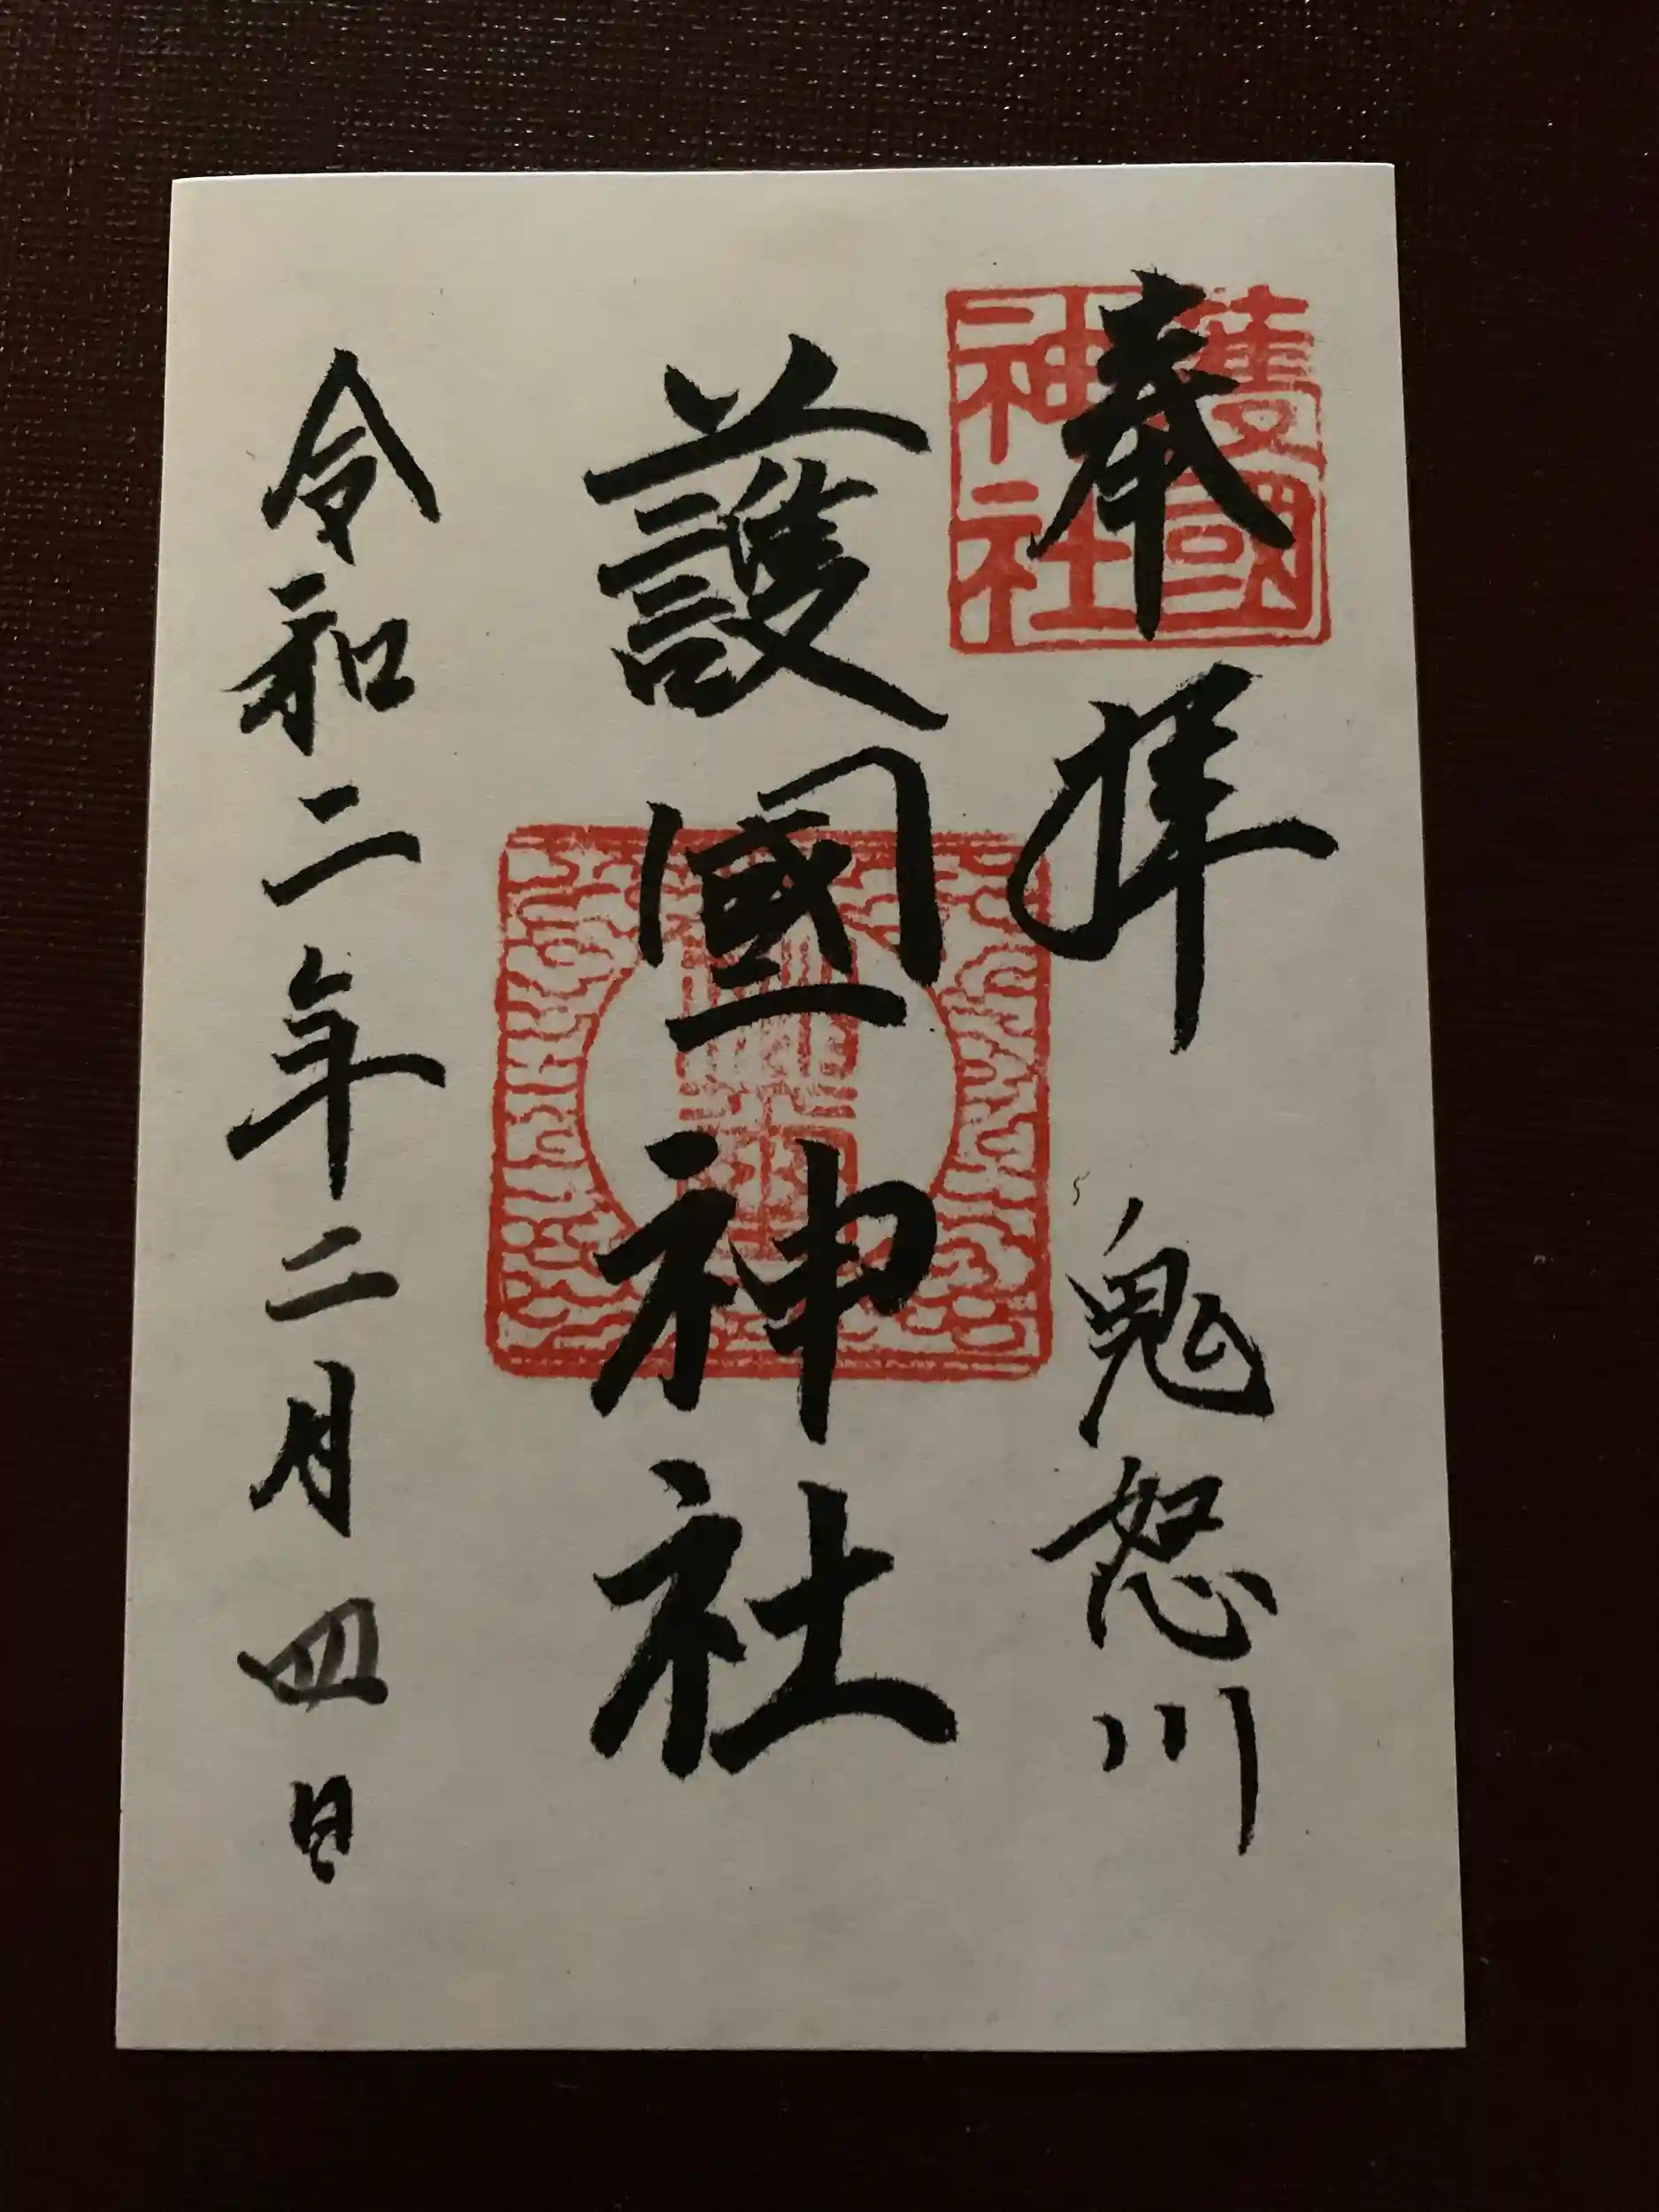 奉拝 鬼怒川
護國神社
令和二年二月四日
護國
神社